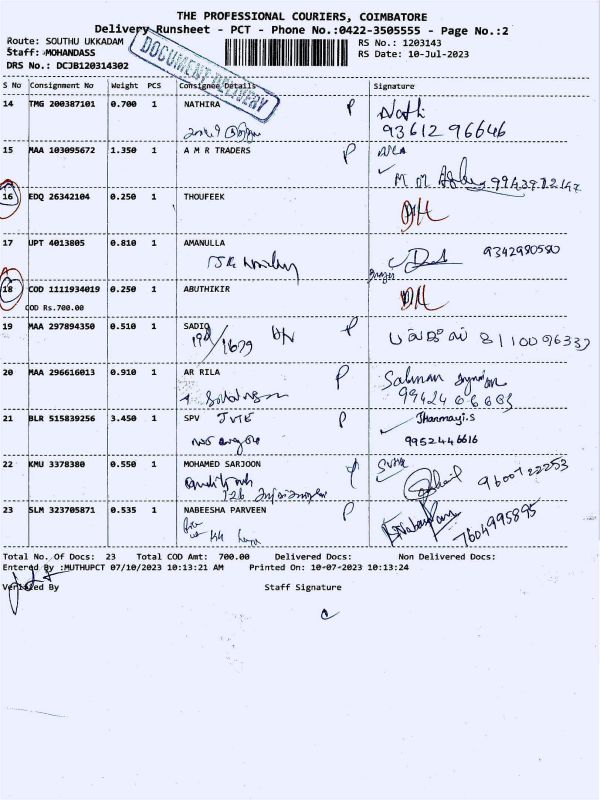 THE PROFESSIONAL COURIERS, COIMBATORE
Delivery Runsheet - PCT - Phone No.:0422-3505555 - Page No.:2
Route: SOUTHU UKKADAM
RS No.: 1203143
Staff: MOHANDASS
RS Date: 10-Jul-2023
DRS No.: DCJB120314302
DOCUMENT DELIVERY
S No Consignment No Weight PCS Consignee Details Signature
14 TMG 200387101 0.700 1 NATHIRA P
9361296646
15 MAA 103095672 1.350 1 A M R TRADERS P
16 EDQ 26342104 0.250 1 THOUFEEK
17 UPT 4013805 0.810 1 AMANULLA 9342980580
18 COD 1111934019 0.250 1 ABUTHIKIR
COD Rs.700.00
19 MAA 297894350 0.510 1 SADIQ P
20 MAA 296616013 0.910 1 AR RILA P Salman
21 BLR 515839256 3.450 1 SPV JVTE P Jhanmayi.S
9952446616
22 KMU 3378380 0.550 1 MOHAMED SARJOON 9600722253
23 SLM 323705871 0.535 1 NABEESHA PARVEEN P
7604995895
Total No. Of Docs: 23 Total COD Amt: 700.00 Delivered Docs: Non Delivered Docs:
Entered By :MUTHUPCT 07/10/2023 10:13:21 AM Printed On: 10-07-2023 10:13:24
Verified By Staff Signature